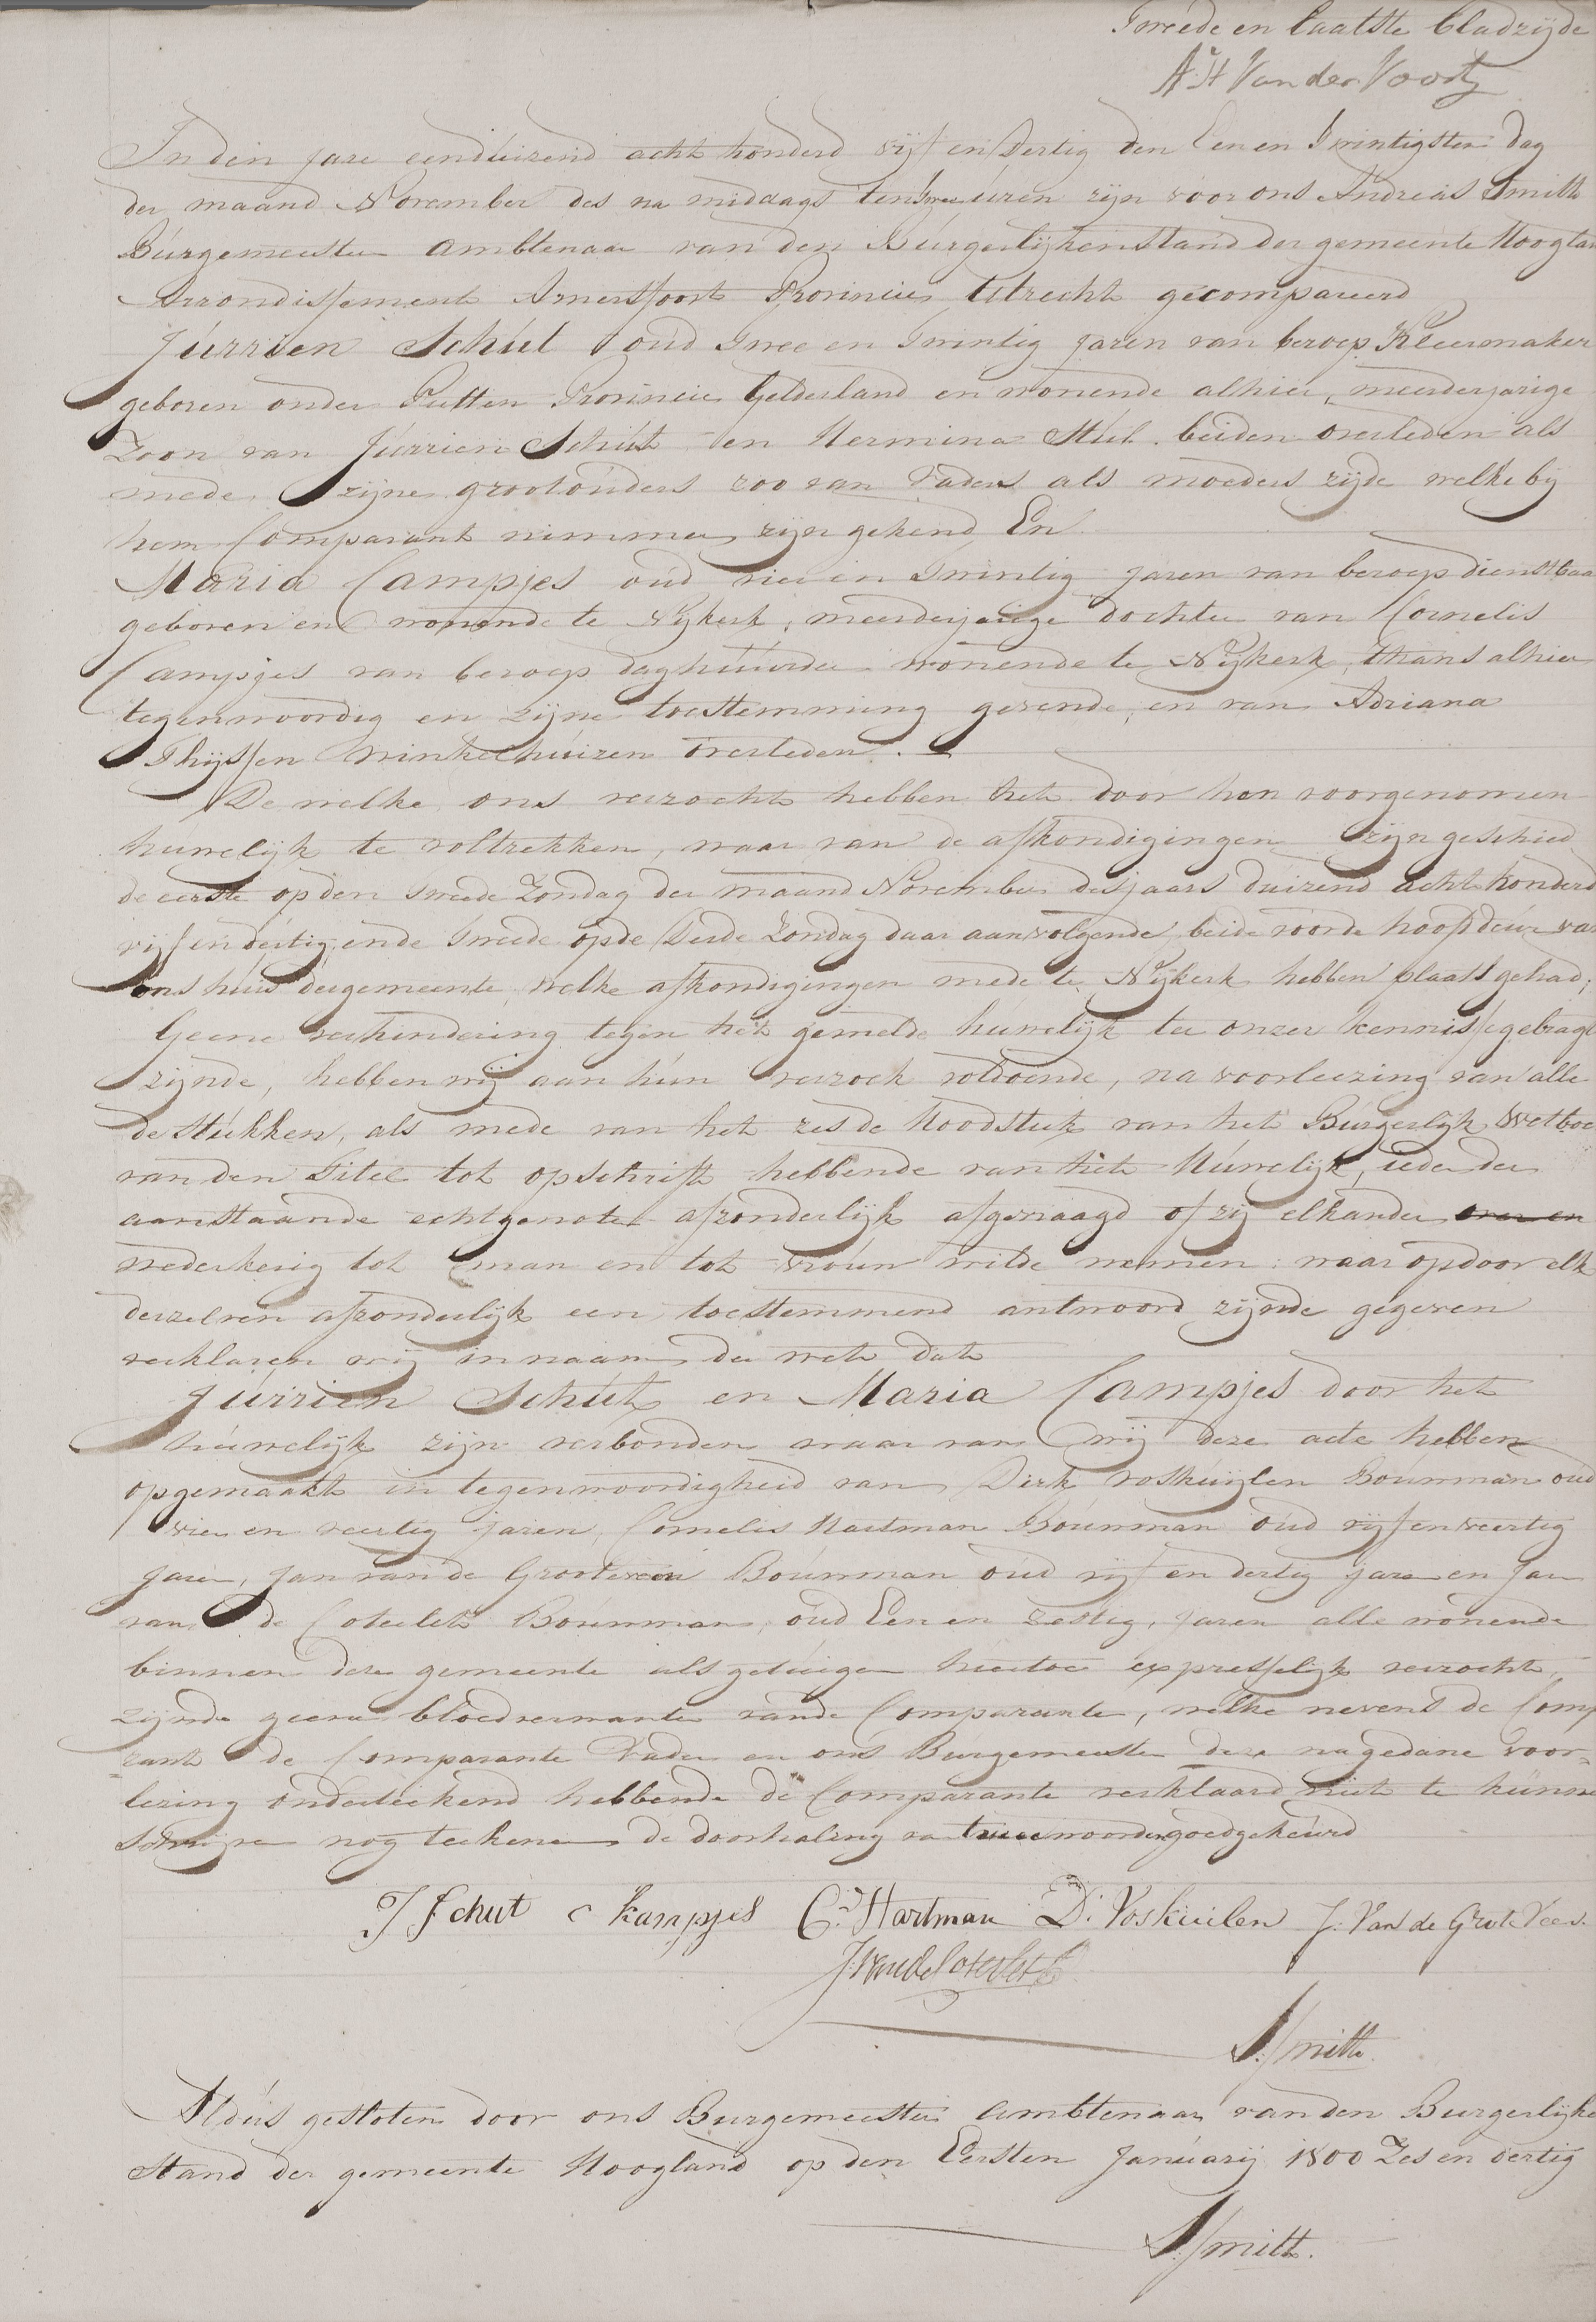 Tweede en laatste bladzijde
A.H Van der Voort
In den jare eenduizend acht honderd vijf en dertig den Eenen Twintigsten dag
der maand November des na middags ten twee uren zijn voor ons Andreas Smith
Burgemeester Ambtenaar van den Burgerlijken stand der gemeente Hoogla
Arrondissement Amersfoort Provincie Utrecht gecompareerd
Jurrien Schut oud twee en twintig jaren van beroep Kleermaker
geboren onder Putten Provincie Gelderland en wonende alhier, meerderjarige
Zoon van Jurrien Schut en Hermina beiden overleden als
mede zijne grootouders zoo van vaders als moeders zijde welke bij
hem Comparant nimmer zijn gekend En
Maria Campjes oud vier en twintig jaren van beroep dienstbaa
geboren en wonende te Nijkerk, meerderjarige dochter van Cornelis
Campjes van beroep daghuurder wonende te Nijkerk, thans alhier
tegenwoordig en zijne toestemming gevende, en van Adriana
Thijssen Winkelhuizen overleden.
De welke ons verzocht hebben het door hen voorgenomen
huwelijk te voltrekken, waar van de afkondigingen zijn geschied
de eerste op den tweede Zondag der maand November des jaars duizend acht honderd
vijf en dertig, en de tweede op de derde Zondag daar aanvolgende, beide voor de hoofddeur va
ons huis der gemeente, welke afkondigingen mede te Nijkerk hebben plaats gehad;
Geene verhindering tegen het gemelde huwelijk ter onzer kennisse gebragt
zijnde, hebben wij aan hun verzoek voldoende, na voorleezing van alle
de stukken, als mede van het zesde Hoodstuk van het Burgerlijk Wetboe
van den Titel tot opschrift hebbende van het Huwelijk, ieder der
aanstaande echtgenoten afzonderlijk afgevraagd of zij elkander over en
wederkerig tot man en tot vrouw wilde nemen: waar op door elk
derzelven afzonderlijk een toestemmend antwoord zijnde gegeven
verklaren wij in naam der wet dat
Jurrien Schut en Maria Campjes door het
huwelijk zijn verbonden waar van wij deze acte hebben
opgemaakt in tegenwoordigheid van Dirk voskuijlen Bouwman oud
vier en veertig jaren, Cornelis Hartman Bouwman oud vijf en veertig
jaren, Jan van de Grooteveen Bouwman oud vijf en dertig jaren en Jan
van de Coterlet Bouwman, oud Een en zestig, jaren alle wonende
binnen deze gemeente als getuigen hiertoe expresselijk verzocht,
zijnde geene bloedverwanten van de Comparante, welke nevens de Comp
rant de Comparante Vader en ons Burgemeester deze na gedane voor=
lezing onderteekend hebbende de Comparante verklaard niet te kunne
Schrijven nog teekenen de doorhaling van twee woorden goedgekeurd
J Schut c kampjes Cs Hartman D. Voskuilen J. Van de Grote Veen.
J. van de Coterlet
A. Smith.
Aldus gesloten door ons Burgemeester Ambtenaar van den Burgerlijke
Stand der gemeente Hoogland op den Eersten Januarij 1800 Zes en dertig
A. Smith.